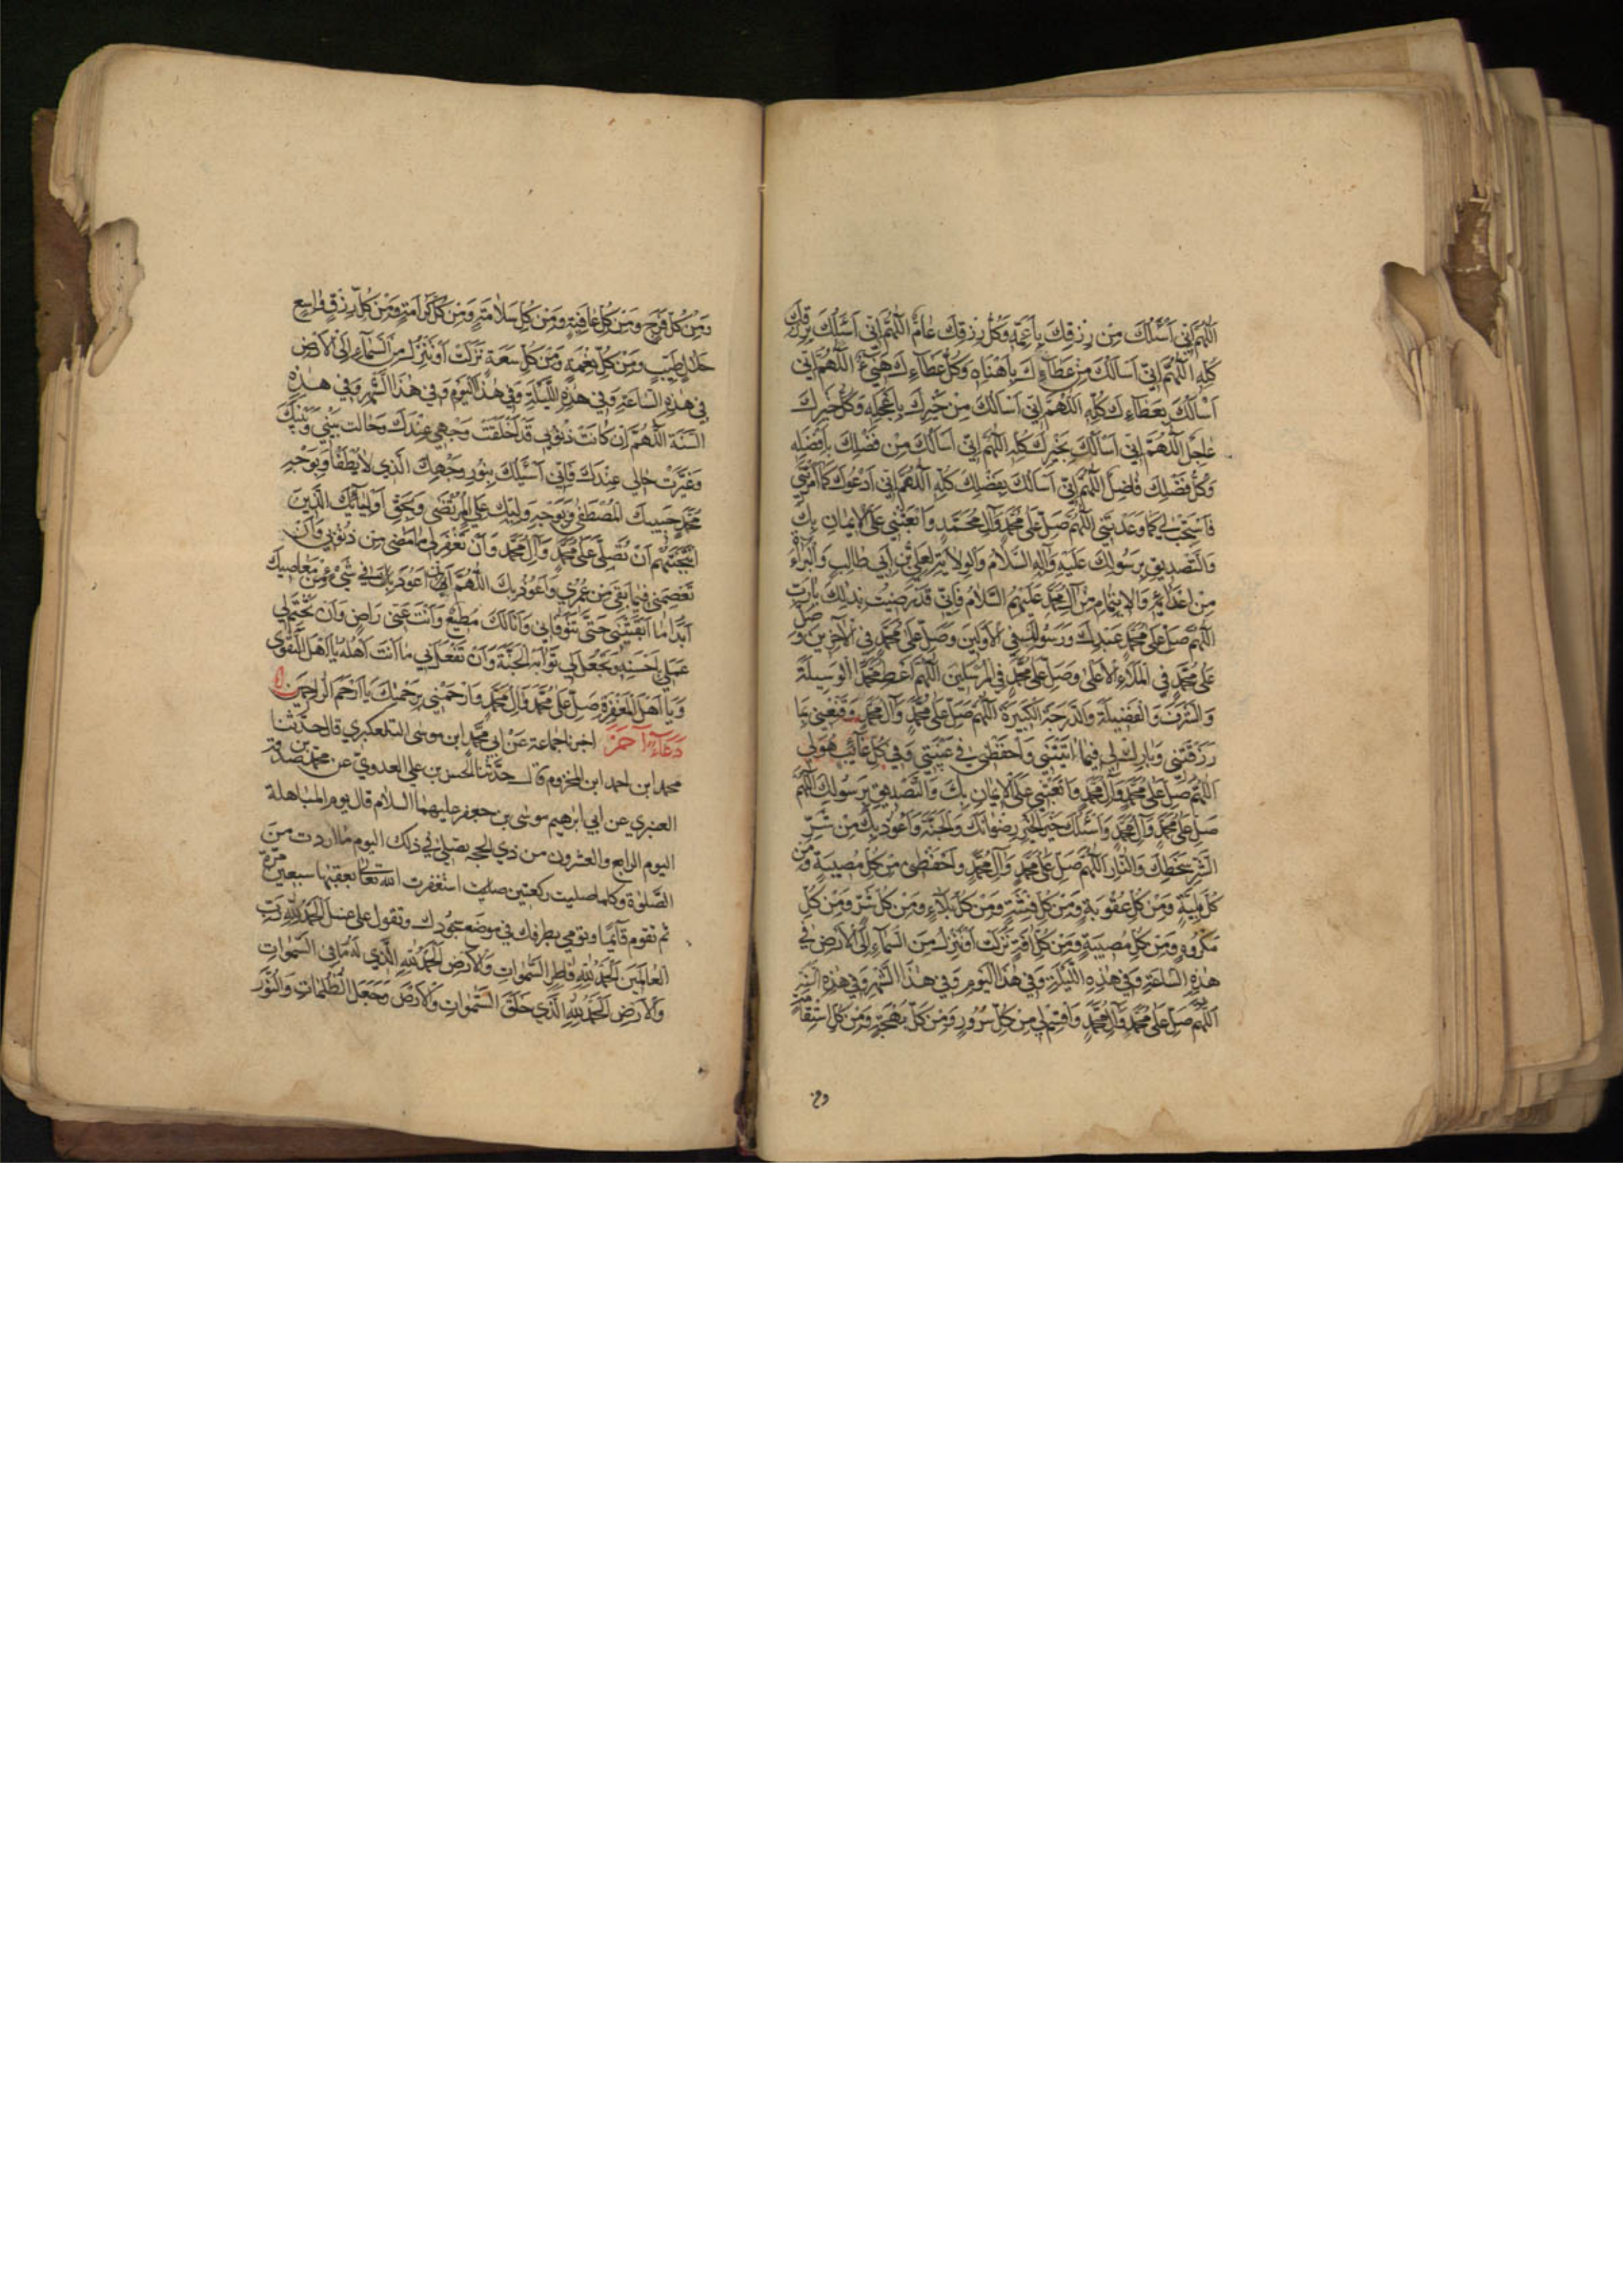 اَللّٰهُمَّ اِنّي اَسْئَلُكَ مِنْ رِزْقِكَ بِاَعَمِّهِ وَكُلُّ رِزْقِكَ عٰامٌّ اَللّٰهُمَّ اِنّي اَسْئَلُكَ بِرِزْقِكَ
كُلِّهِ اَللّٰهُمَّ اِنّي اَسْاَلُكَ مِنْ عَطٰاءِكَ بِاَهْنَاِهِ وَكُلُّ عَطٰاءِكَ هَنِيءٌ اَللّٰهُمَّ اِنّي
اَسْاَلُكَ بِعَطٰاءِكَ كُلِّهِ اَللّٰهُمَّ اِنّي اَسْاَلُكَ مِنْ خَيْرِكَ بِاَعْجَلِهِ وَكُلُّ خَيْرِكَ
عٰاجِلٌ اَللّٰهُمَّ اِنّي اَسْاَلُكَ بِخَيْرِكَ كُلِّهِ اَللّٰهُمَّ اِنّي اَسْاَلُكَ مِنْ فَضْلِكَ بِاَفْضَلِهِ
وَكُلُّ فَضْلِكَ فٰاضِلٌ اَللّٰهُمَّ اِنّي اَسْاَلُكَ بِفَضْلِكَ كُلِّهِ اَللّٰهُمَّ اِنّي اَدْعُوكَ كَمٰا اَمَرْتَني
فَاسْتَجِبْ لي كَمٰا وَعَدْتَني اَللّٰهُمَّ صَلِّ عَلٰى مُحَمَّدٍ وَآلِ مُحَمَّدٍ وَابْعَثْني عَلَى الْاِيمٰانِ بِكَ
وَالتَّصْدِيقِ بِرَسُولِكَ عَلَيْهِ وَآلِهِ السَّلٰامُ وَالْوِلٰايَةِ لِعَلِيِّ بْنِ اَبي طٰالِبٍ وَالْبَرٰاءَةِ
مِنْ اَعْدٰائِهِ وَالْاِيتِمٰامِ مِنْ آلِ مُحَمَّدٍ عَلَيْهِمُ السَّلٰامُ فَاِنّي قَدْ رَضِيتُ بِذٰلِكَ يٰا رَبِّ
اَللّٰهُمَّ صَلِّ عَلٰى مُحَمَّدٍ عَبْدِكَ وَرَسُولِكَ فِي الْاَوَّلِينَ وَصَلِّ عَلٰى مُحَمَّدٍ فِي الْآخِرِينَ وَصَلِّ
عَلٰى مُحَمَّدٍ فِي الْمَلَاءِ الْاَعْلٰى وَصَلِّ عَلٰى مُحَمَّدٍ فِي الْمُرْسَلِينَ اَللّٰهُمَّ اَعْطِ مُحَمَّداً الْوَسِيلَةَ
وَالشَّرَفَ وَالْفَضِيلَةَ وَالدَّرَجَةَ الْكَبِيرَةَ اَللّٰهُمَّ صَلِّ عَلٰى مُحَمَّدٍ وَآلِ مُحَمَّدٍ وَقَنِّعْني بِمٰا
رَزَقْتَني وَبٰارِكْ لي فِيمٰا اٰتَيْتَني وَاحْفَظْني في غَيْبَتي وَفي كُلِّ غٰآئِبٍ هُوَ لي
اَللّٰهُمَّ صَلِّ عَلٰى مُحَمَّدٍ وَآلِ مُحَمَّدٍ وَابْعَثْني عَلَى الْاِيمٰانِ بِكَ وَالتَّصْدِيقِ بِرَسُولِكَ اَللّٰهُمَّ
صَلِّ عَلٰى مُحَمَّدٍ وَآلِ مُحَمَّدٍ وَاَسْئَلُكَ خَيْرَ الْخَيْرِ رِضْوٰانَكَ وَالْجَنَّةَ وَاَعُوذُ بِكَ مِنْ شَرِّ
الشَّرِّ سَخَطِكَ وَالنّٰارِ اَللّٰهُمَّ صَلِّ عَلٰى مُحَمَّدٍ وَآلِ مُحَمَّدٍ وَاحْفَظْني مِنْ كُلِّ مُصِيبَةٍ وَمِنْ
كُلِّ بَلِيَّةٍ وَمِنْ كُلِّ عُقُوبَةٍ وَمِنْ كُلِّ فِتْنَةٍ وَمِنْ كُلِّ بَلٰاءٍ وَمِنْ كُلِّ شَرٍّ وَمِنْ كُلِّ
مَكْرُوهٍ وَمِنْ كُلِّ مُصِيبَةٍ وَمِنْ كُلِّ آفَةٍ نَزَلَتْ اَوْ تَنْزِلُ مِنَ السَّمٰاءِ اِلَى الْاَرْضِ في
هٰذِهِ السّٰاعَةِ وَفي هٰذِهِ اللَّيْلَةِ وَفي هٰذَا الْيَوْمِ وَفي هٰذَا الشَّهْرِ وَفي هٰذِهِ السَّنَةِ
اَللّٰهُمَّ صَلِّ عَلٰى مُحَمَّدٍ وَآلِ مُحَمَّدٍ وَاقْسِمْ لي مِنْ كُلِّ سُرُورٍ وَمِنْ كُلِّ بَهْجَةٍ وَمِنْ كُلِّ اسْتِقٰامَةٍ
ومن
وَمِنْ كُلِّ فَرَجٍ وَمِنْ كُلِّ عٰافِيَةٍ وَمِنْ كُلِّ سَلٰامَةٍ وَمِنْ كُلِّ كَرٰامَةٍ وَمِنْ كُلِّ رِزْقٍ وٰاسِعٍ
حَلٰالٍ طَيِّبٍ وَمِنْ كُلِّ نِعْمَةٍ وَمِنْ كُلِّ سَعَةٍ نَزَلَتْ اَوْ تَنْزِلُ مِنَ السَّمٰاءِ اِلَى الْاَرْضِ
في هٰذِهِ السّٰاعَةِ وَفي هٰذِهِ اللَّيْلَةِ وَفي هٰذَا الْيَوْمِ وَفي هٰذَا الشَّهْرِ وَفي هٰذِهِ
السَّنَةِ اَللّٰهُمَّ اِنْ كٰانَتْ ذُنُوبي قَدْ اَخْلَقَتْ وَجْهي عِنْدَكَ وَحٰالَتْ بَيْني وَبَيْنَكَ
وَغَيَّرَتْ حٰالي عِنْدَكَ فَاِنّي اَسْئَلُكَ بِنُورِ وَجْهِكَ الَّذي لٰا يُطْفَأُ وَبِوَجْهِ
مُحَمَّدٍ حَبِيبِكَ الْمُصْطَفٰى وَبِوَجْهِ وَلِيِّكَ عَلِيٍّ الْمُرْتَضٰى وَبِحَقِّ اَوْلِيٰائِكَ الَّذِينَ
انْتَجَبْتَهُمْ اَنْ تُصَلِّيَ عَلٰى مُحَمَّدٍ وَآلِ مُحَمَّدٍ وَاَنْ تَغْفِرَ لي مٰا مَضٰى مِنْ ذُنُوبي وَاَنْ
تَعْصِمَني فِيمٰا بَقِيَ مِنْ عُمْري وَاَعُوذُ بِكَ اَللّٰهُمَّ اَنْ اَعُودَ في شَيْءٍ مِنْ مَعٰاصِيكَ
اَبَداً مٰا اَبْقَيْتَني حَتّٰى تَتَوَفّٰاني وَاَنَا لَكَ مُطِيعٌ وَاَنْتَ عَنّي رٰاضٍ وَاَنْ تَخْتِمَ لي
عَمَلي بِاَحْسَنِهِ وَتَجْعَلَ لي ثَوٰابَهُ الْجَنَّةَ وَاَنْ تَفْعَلَ بي مٰا اَنْتَ اَهْلُهُ يٰا اَهْلَ التَّقْوٰى
وَيٰا اَهْلَ الْمَغْفِرَةِ صَلِّ عَلٰى مُحَمَّدٍ وَآلِ مُحَمَّدٍ وَارْحَمْني بِرَحْمَتِكَ يٰا اَرْحَمَ الرّٰاحِمِينَ
دعاء آخر اخبرنا جماعة عن ابي محمد ابن موسى التلعكبري قال حدثنا
محمد ابن احمد ابن المخزوم قال حدثنا الحسن بن علي العدوي عن محمد بن صدقة
العنبري عن ابي ابرهيم موسى بن جعفر عليهما السلام قال يوم المباهلة
اليوم الرابع والعشرون من ذي الحجه تصلي في ذلك اليوم ما اردت من
الصلوة وكلما صليت ركعتين استغفرت الله تعالى بعقبها سبعين مرة
ثم تقوم قآئما وتومي بطرفك في موضع سجودك وتقول على غسل اَلْحَمْدُ لِلّٰهِ رَبِّ
الْعٰالَمِينَ اَلْحَمْدُ لِلّٰهِ فٰاطِرِ السَّمٰوٰاتِ وَالْاَرْضِ اَلْحَمْدُ لِلّٰهِ الَّذي لَهُ مٰا فِي السَّمٰوٰاتِ
وَالْاَرْضِ اَلْحَمْدُ لِلّٰهِ الَّذي خَلَقَ السَّمٰوٰاتِ وَالْاَرْضَ وَجَعَلَ الظُّلُمٰاتِ وَالنُّورَ